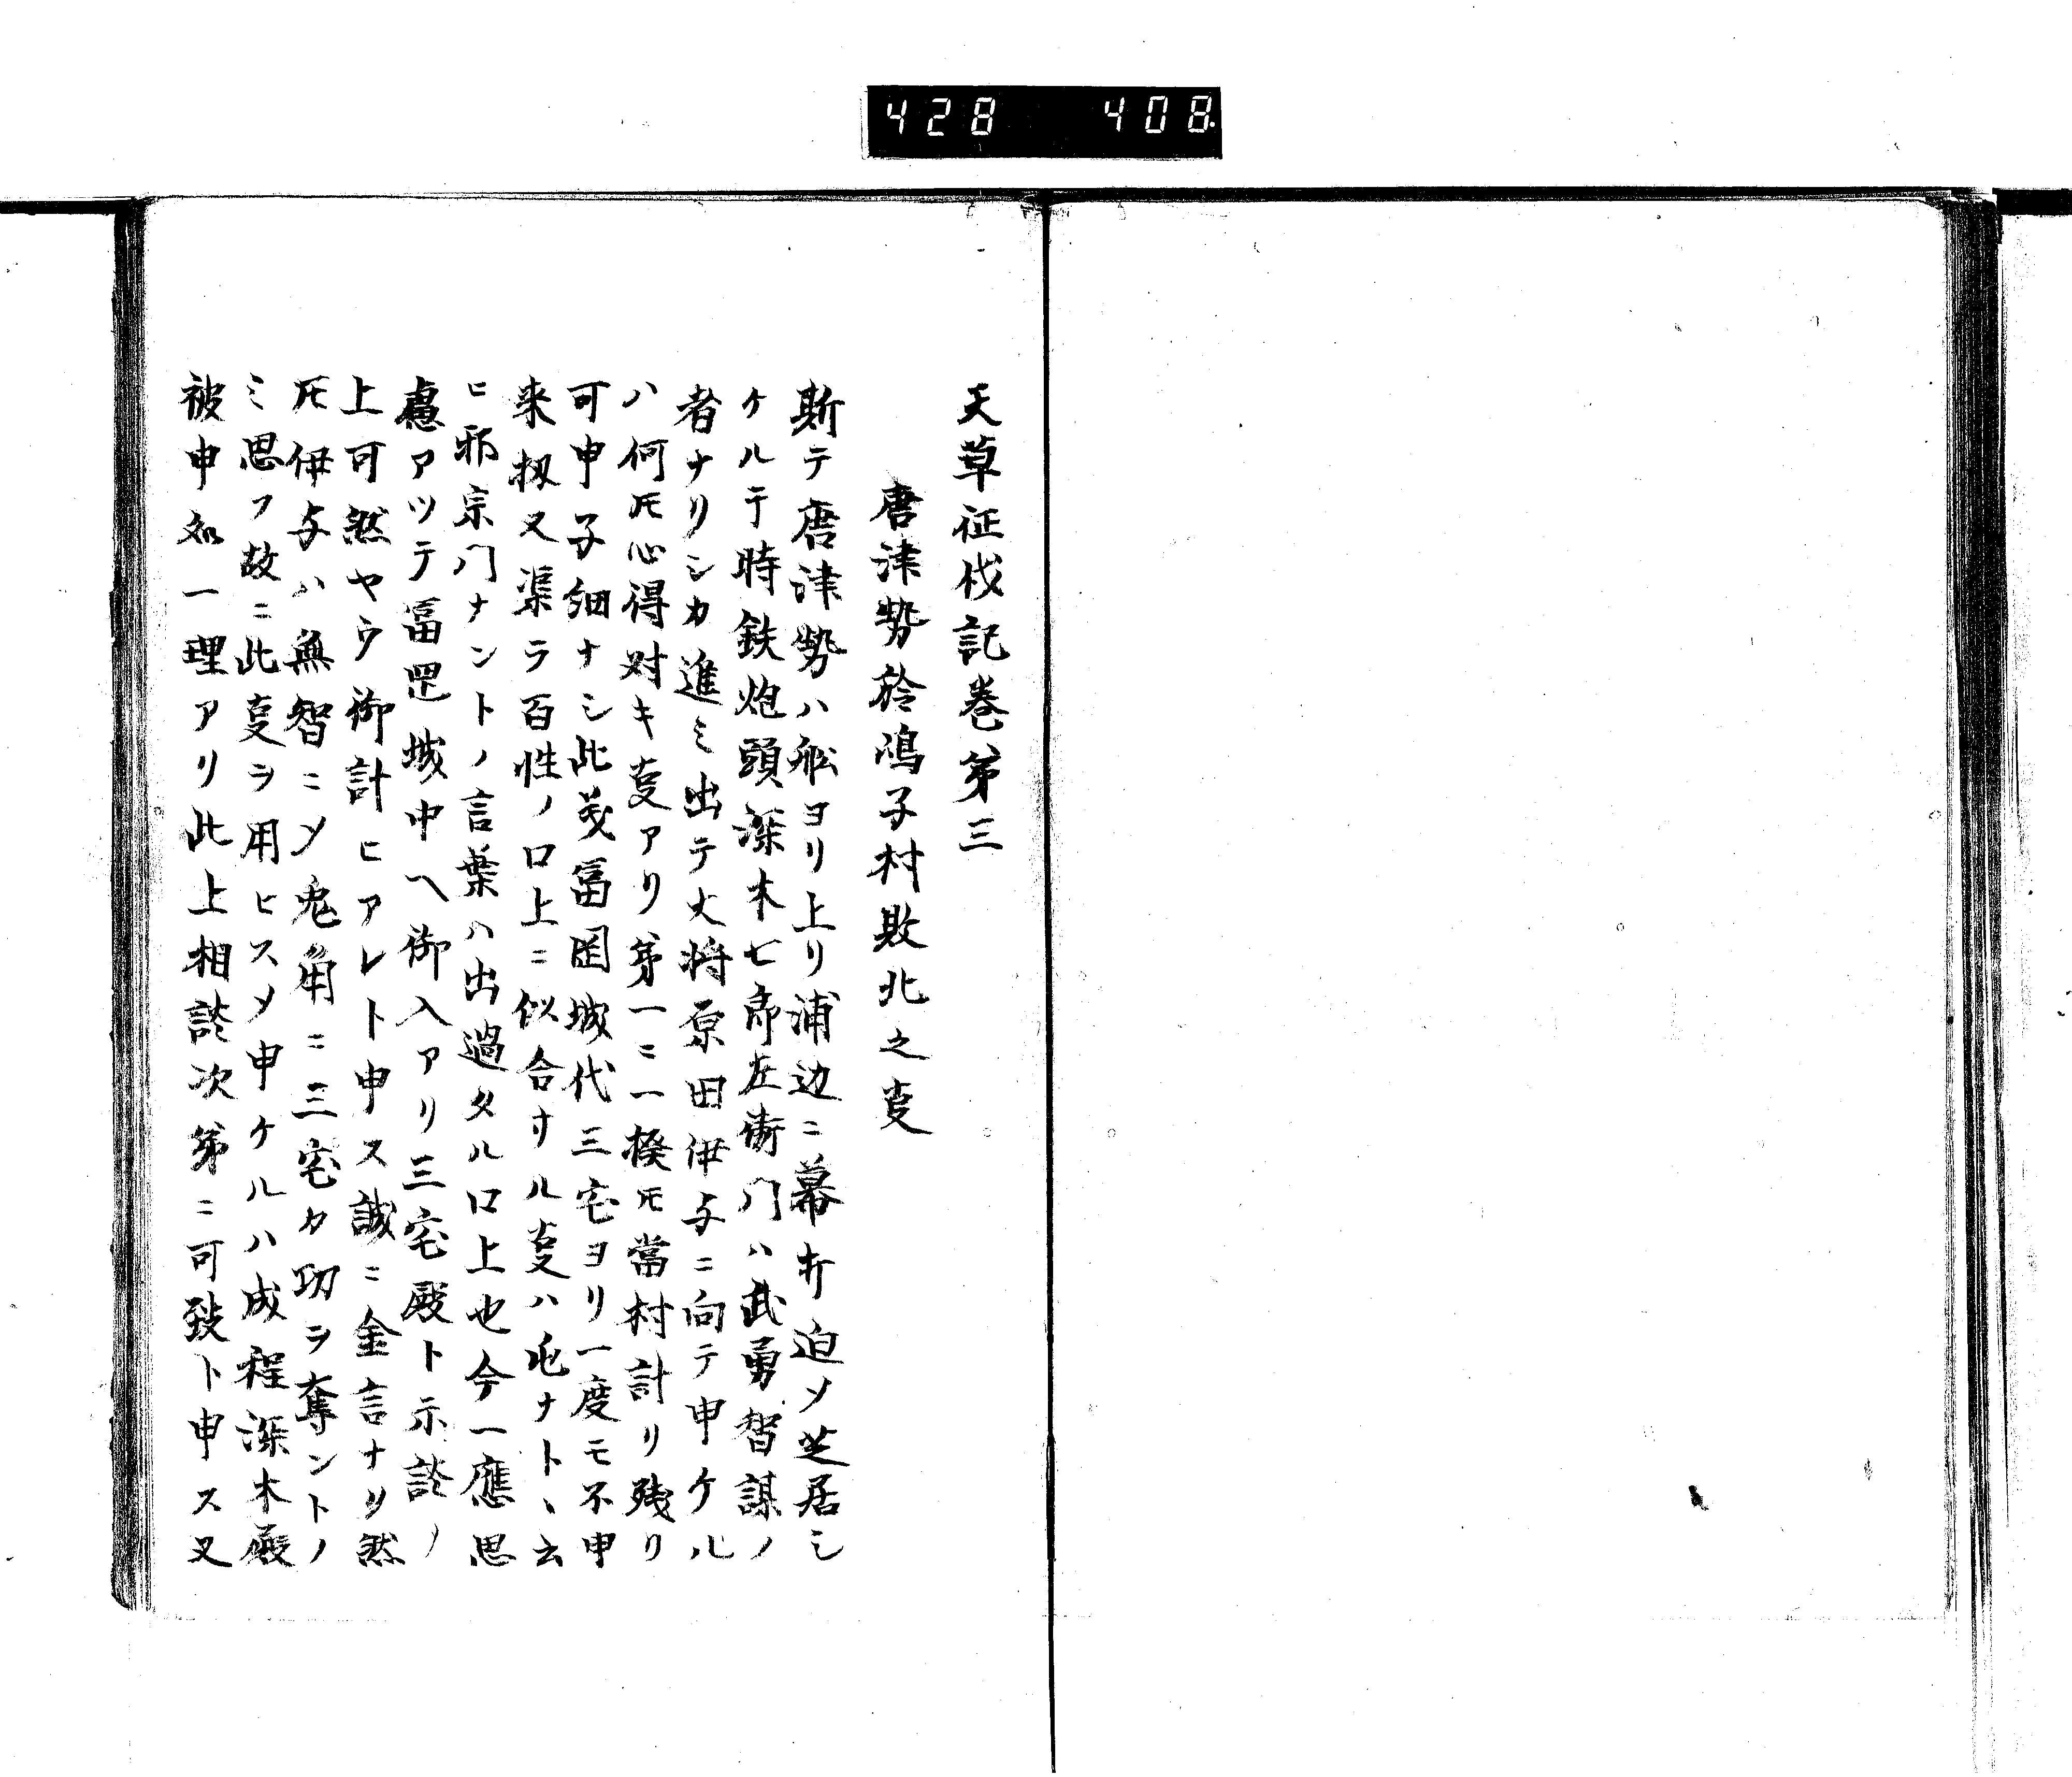 428 408
天草征伐記巻第三
唐津勢於鴻子村敗北之㕝
斯テ唐津勢ハ舩ヨリ上リ浦辺ニ幕打廻ノ芝居シ
ケルテ時鉄炮頭深木七郎左衛門ハ武勇智謀ノ
者ナリシカ進ミ出テ大将原田伊与ニ向テ申ケル
ハ何𪜈心得対キ㕝アリ第一ニ一揆𪜈當村計リ残リ
可申子細ナシ此義冨岡城代三宅ヨリ一度モ不申
来扨又渠ラ百性ノ口上ニ似合サル㕝ハ兆ナトヽ云
ヒ邪宗門ナントノ言葉ハ出過タル口上也今一應思
慮アツテ冨罡城中ヘ御入アリ三宅殿ト示談ノ
上可然ヤウ御計ヒアレト申ス誠ニ金言ナリ然
𪜈伊与ハ無智ニメ兎角ニ三宅カ功ヲ奪ントノ
ミ思フ故ニ此㕝ヲ用ヒスメ申ケルハ成程深木殿
被申処一理アリ此上相談次第ニ可致ト申ス又